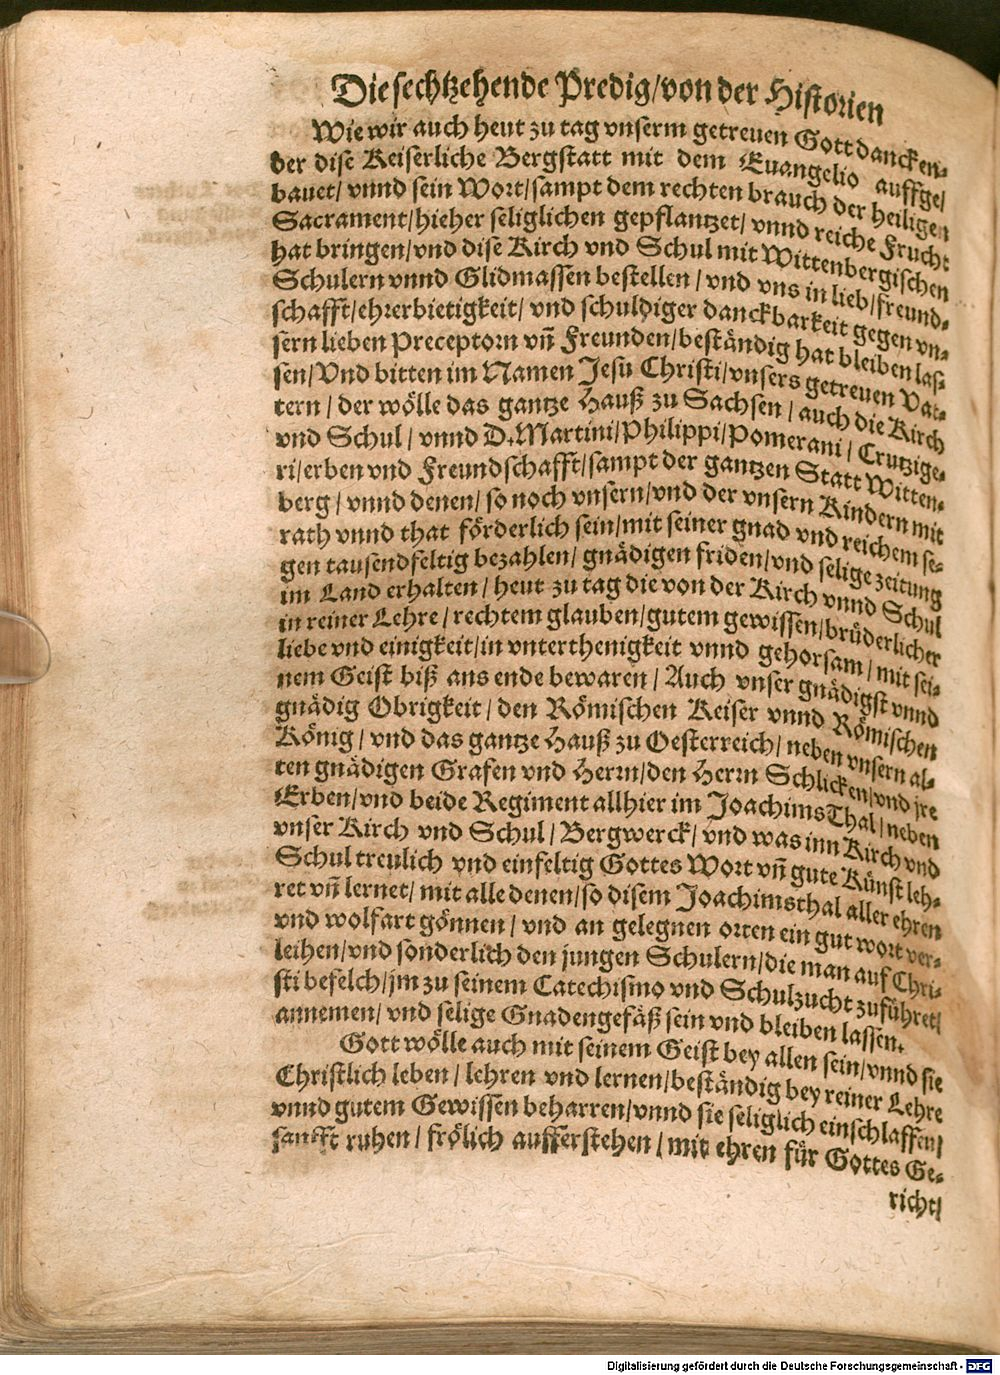 Die sechtzehende Predig/von der Historien
Wie wir auch heut zu tag vnserm getreuen Gott dancken-
der dise Keiserliche Bergstatt mit dem Euangelio auffge/
bauet/ vnnd sein Wort/sampt dem rechten brauch der heiligen
Sacrament/hieher seliglichen gepflantzet/ vnnd reiche Frucht
hat bringen/vnd dise Kirch vnd Schul mit Wittenbergischen
Schulern vnnd Glidmassen bestellen / vnd vns in lieb/freund-
schafft/ehrerbietigkeit/ vnd schuldiger danckbarkeit gegen vn-
sern lieben Preceptorn vñ Freunden/beständig hat bleiben las-
sen/Vnd bitten im Namen Jesu Christi/vnsers getreuen Vat-
tern / der wölle das gantze Hauß zu Sachsen / auch die Kirch
vnd Schul / vnnd D. Martini/Philippi/Pomerani / Crutzige-
ri/erben vnd Freundschafft/sampt der gantzen Statt Witten-
berg / vnnd denen/ so noch vnsern/vnd der vnsern Kindern mit
rath vnnd that förderlich sein/mit seiner gnad vnd reichem se-
gen tausendfeltig bezahlen/ gnädigen friden/vnd selige zeitung
im Land erhalten / heut zu tag die von der Kirch vnnd Schul
in reiner Lehre / rechtem glauben/gutem gewissen/brüderlicher
liebe vnd einigkeit/in vnterthenigkeit vnnd gehorsam / mit sei-
nem Geist biß ans ende bewaren / Auch vnser gnädigst vnnd
gnädig Obrigkeit / den Römischen Keiser vnnd Römischen
König / vnd das gantze Hauß zu Oesterreich/ neben vnsern al-
ten gnädigen Grafen vnd Herrn/den Herrn Schlicken/vnd jre
Erben/vnd beide Regiment allhier im JoachimsThal / neben
vnser Kirch vnd Schul / Bergwerck/ vnd was inn Kirch vnd
Schul treulich vnd einfeltig Gottes Wort vñ gute Künst leh-
ret vñ lernet/ mit alle denen/so disem Joachimsthal aller ehren
vnd wolfart gönnen / vnd an gelegnen orten ein gut wort ver-
leihen/vnd sonderlich den jungen Schulern/die man auf Chri-
sti befelch/jm zu seinem Catechismo vnd Schulzucht zuführet/
annemen/ vnd selige Gnadengefäß sein vnd bleiben lassen.
Gott wölle auch mit seinem Geist bey allen sein/vnnd sie
Christlich leben / lehren vnd lernen/beständig bey reiner Lehre
vnnd gutem Gewissen beharren/vnnd sie seliglich einschlaffen/
sanfft ruhen / frölich aufferstehen / mit ehren für Gottes Ge-
richt/
Digitalisierung gefördert durch die Deutsche Forschungsgemeinschaft - DFG